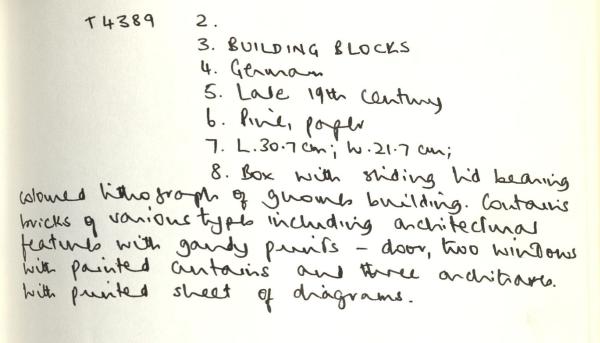 T4389 2.
3. BUILDING BLOCKS
4. German
5. Late 19th century
6. Pine, paper
7. L.30.7cm; W.21.7 cm;
8. Box with sliding lid bearing
coloured lithograph of gnomes building. Contains
bricks of various types including architectural
features with gaudy prints – door, two windows
with painted curtains and three architraves.
With printed sheet of diagrams.